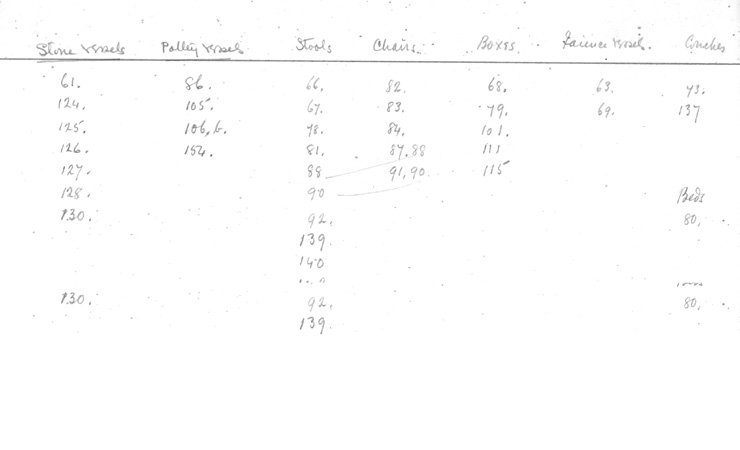 Stone Vessels Pottery Vessels Stools Chairs. Boxes. Faience Vessels. Couches
61. 86. 66. 82. 68. 63. 73.
124. 105. 67. 83. 79. 69. 137
125. 106, b. 78. 84. 101.
126. 154. 81. 87, 88 111
127. 89 91, 90. 115
128. 90 Beds
130. 92. 80.
139.
140
130. 92. 80.
139.